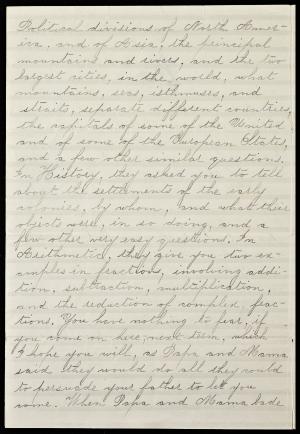 Political divisions of North Amer-
ica, and of Asia, the principal
mountains and rivers, and the two
largest cities, in the world, what
mountains, seas, isthmuses, and
straits, separate different countries,
the capitals of some of the United
and of some of the European States,
and a few other similar questions.
In History, they asked you to tell
about the settlements of the early
colonies, by whom, and what their
objects were, in so doing, and a
few other very easy questions. In
Arithmetic, they give you two ex-
amples in fractions, involving addi-
tion, subtraction, multiplication,
and the reduction of complex frac-
tions. You have nothing to fear, if
you come on here, next term, which
I hope you will, as Papa and Mama
said they would do all they could
to persuade your father to let you
come. When Papa and Mama bade